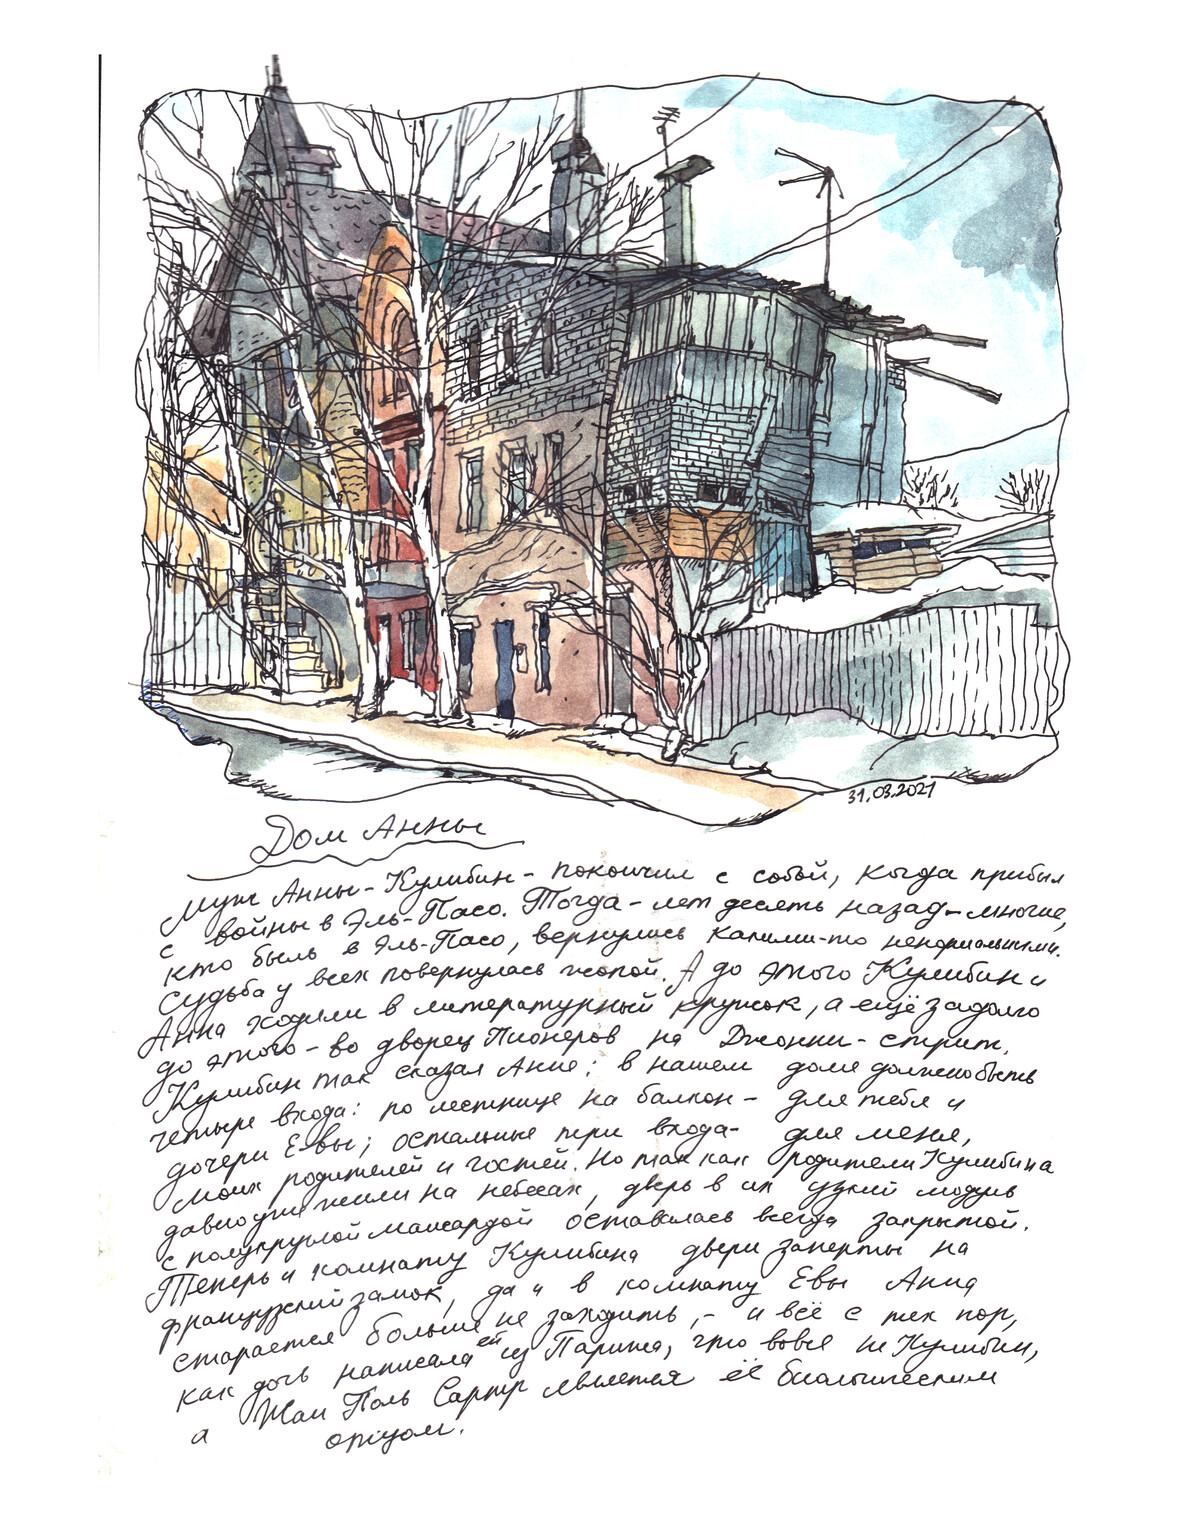 31.03.2021
Дом Анны
Муж Анны - Кулибин - покончил с собой, когда прибыл
с войны в Эль-Пасо. Тогда - лет десять назад - многие,
кто быль в Эль-Пасо, вернулись какими-то ненормальными.
Судьба у всех повернулась жопой. А до этого Кулибин и
Анна ходили в литературный кружок, а ещё задолго
до этого - во дворец Пионеров на Джонни-стрит.
Кулибин так сказал Анне: в нашем доме должно быть
четыре входа: по лестнице на балкон - для тебя и
дочери Евы; остальные три входа - для меня,
моих родителей и гостей. Но так как родители Кулибина
давно уже жили на небесах, дверь в их узкий модуль
с полукруглой мансардой оставалась всегда закрытой.
Теперь и комнату Кулибина двери заперты на
французский замок, да и в комнату Евы Анна
старается больше не заходить, - и всё с тех пор,
как дочь написала ей из Парижа, что вовсе не Кулибин,
а Жан Поль Сартр является её биологическим
отцом.